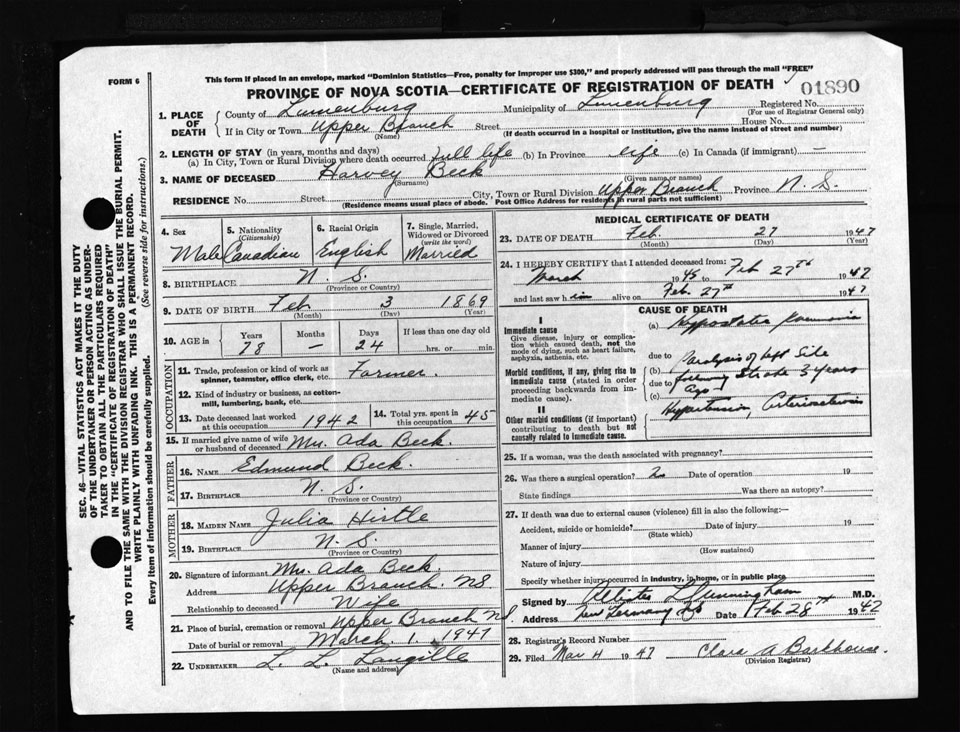 FORM 6
This form if placed in an envelope, marked "Dominion Statistics—Free, penalty for improper use $300," and properly addressed will pass through the mail "FREE"
PROVINCE OF NOVA SCOTIA—CERTIFICATE OF REGISTRATION OF DEATH
01890
1. PLACE OF DEATH
County of Lunenburg Municipality of Lunenburg Registered No.
(For use of Registrar General only)
If in City or Town Upper Branch Street House No.
(Name) (If death occurred in a hospital or institution, give the name instead of street and number)
2. LENGTH OF STAY (in years, months and days)
(a) In City, Town or Rural Division where death occurred full life (b) In Province life (c) In Canada (if immigrant) —
3. NAME OF DECEASED Harvey Beck
(Surname) (Given name or names)
RESIDENCE No. Street City, Town or Rural Division Upper Branch Province N. S.
(Residence means usual place of abode. Post Office Address for residents in rural parts not sufficient)
4. Sex
Male
5. Nationality
(Citizenship)
Canadian
6. Racial Origin
English
7. Single, Married, Widowed or Divorced
(write the word)
Married
8. BIRTHPLACE N. S.
(Province or Country)
9. DATE OF BIRTH Feb 3 1869
(Month) (Day) (Year)
10. AGE in
Years Months Days If less than one day old
78 — 24 hrs. or min.
OCCUPATION
11. Trade, profession or kind of work as spinner, teamster, office clerk, etc. Farmer.
12. Kind of industry or business, as cotton-mill, lumbering, bank, etc.
13. Date deceased last worked at this occupation 1942
14. Total yrs. spent in this occupation 45
15. If married give name of wife or husband of deceased Mrs. Ada Beck.
FATHER
16. NAME Edmund Beck.
17. BIRTHPLACE N. S.
(Province or Country)
MOTHER
18. MAIDEN NAME Julia Hirtle
19. BIRTHPLACE N. S.
(Province or Country)
20. Signature of informant Mrs. Ada Beck.
Address Upper Branch. NS
Relationship to deceased Wife
21. Place of burial, cremation or removal Upper Branch N.S.
Date of burial or removal March 1. 1947
22. UNDERTAKER L. L. Langille
(Name and address)
MEDICAL CERTIFICATE OF DEATH
23. DATE OF DEATH Feb. 27 1947
(Month) (Day) (Year)
24. I HEREBY CERTIFY that I attended deceased from:
March 1945 to Feb 27th 1947
and last saw him alive on Feb. 27th 1947
I
Immediate cause
Give disease, injury or complication which caused death, not the mode of dying, such as heart failure, asphyxia, asthenia, etc.
Morbid conditions, if any, giving rise to immediate cause (stated in order proceeding backwards from immediate cause).
II
Other morbid conditions (if important) contributing to death but not causally related to immediate cause.
CAUSE OF DEATH
(a) Hypostatic pneumonia
due to
(b) Paralysis of left side
due to following stroke 3 years
(c) ago
Hypertension,
25. If a woman, was the death associated with pregnancy?
26. Was there a surgical operation? Date of operation 19
State findings Was there an autopsy?
27. If death was due to external causes (violence) fill in also the following:—
Accident, suicide or homicide? Date of injury 19
(State which)
Manner of injury
(How sustained)
Nature of injury
Specify whether injury occurred in industry, in home, or in public place
Signed by Cunningham M.D.
Address New Germany NS Date Feb 28th 1947
28. Registrar's Record Number
29. Filed Mar 4 1947 Clara A Barkhouse.
(Division Registrar)
SEC. 46—VITAL STATISTICS ACT MAKES IT THE DUTY
OF THE UNDERTAKER OR PERSON ACTING AS UNDER-
TAKER TO OBTAIN ALL THE PARTICULARS REQUIRED
IN THE "CERTIFICATE OF REGISTRATION OF DEATH"
AND TO FILE THE SAME WITH THE DIVISION REGISTRAR WHO SHALL ISSUE THE BURIAL PERMIT.
WRITE PLAINLY WITH UNFADING INK. THIS IS A PERMANENT RECORD.
Every item of information should be carefully supplied. (See reverse side for instructions.)